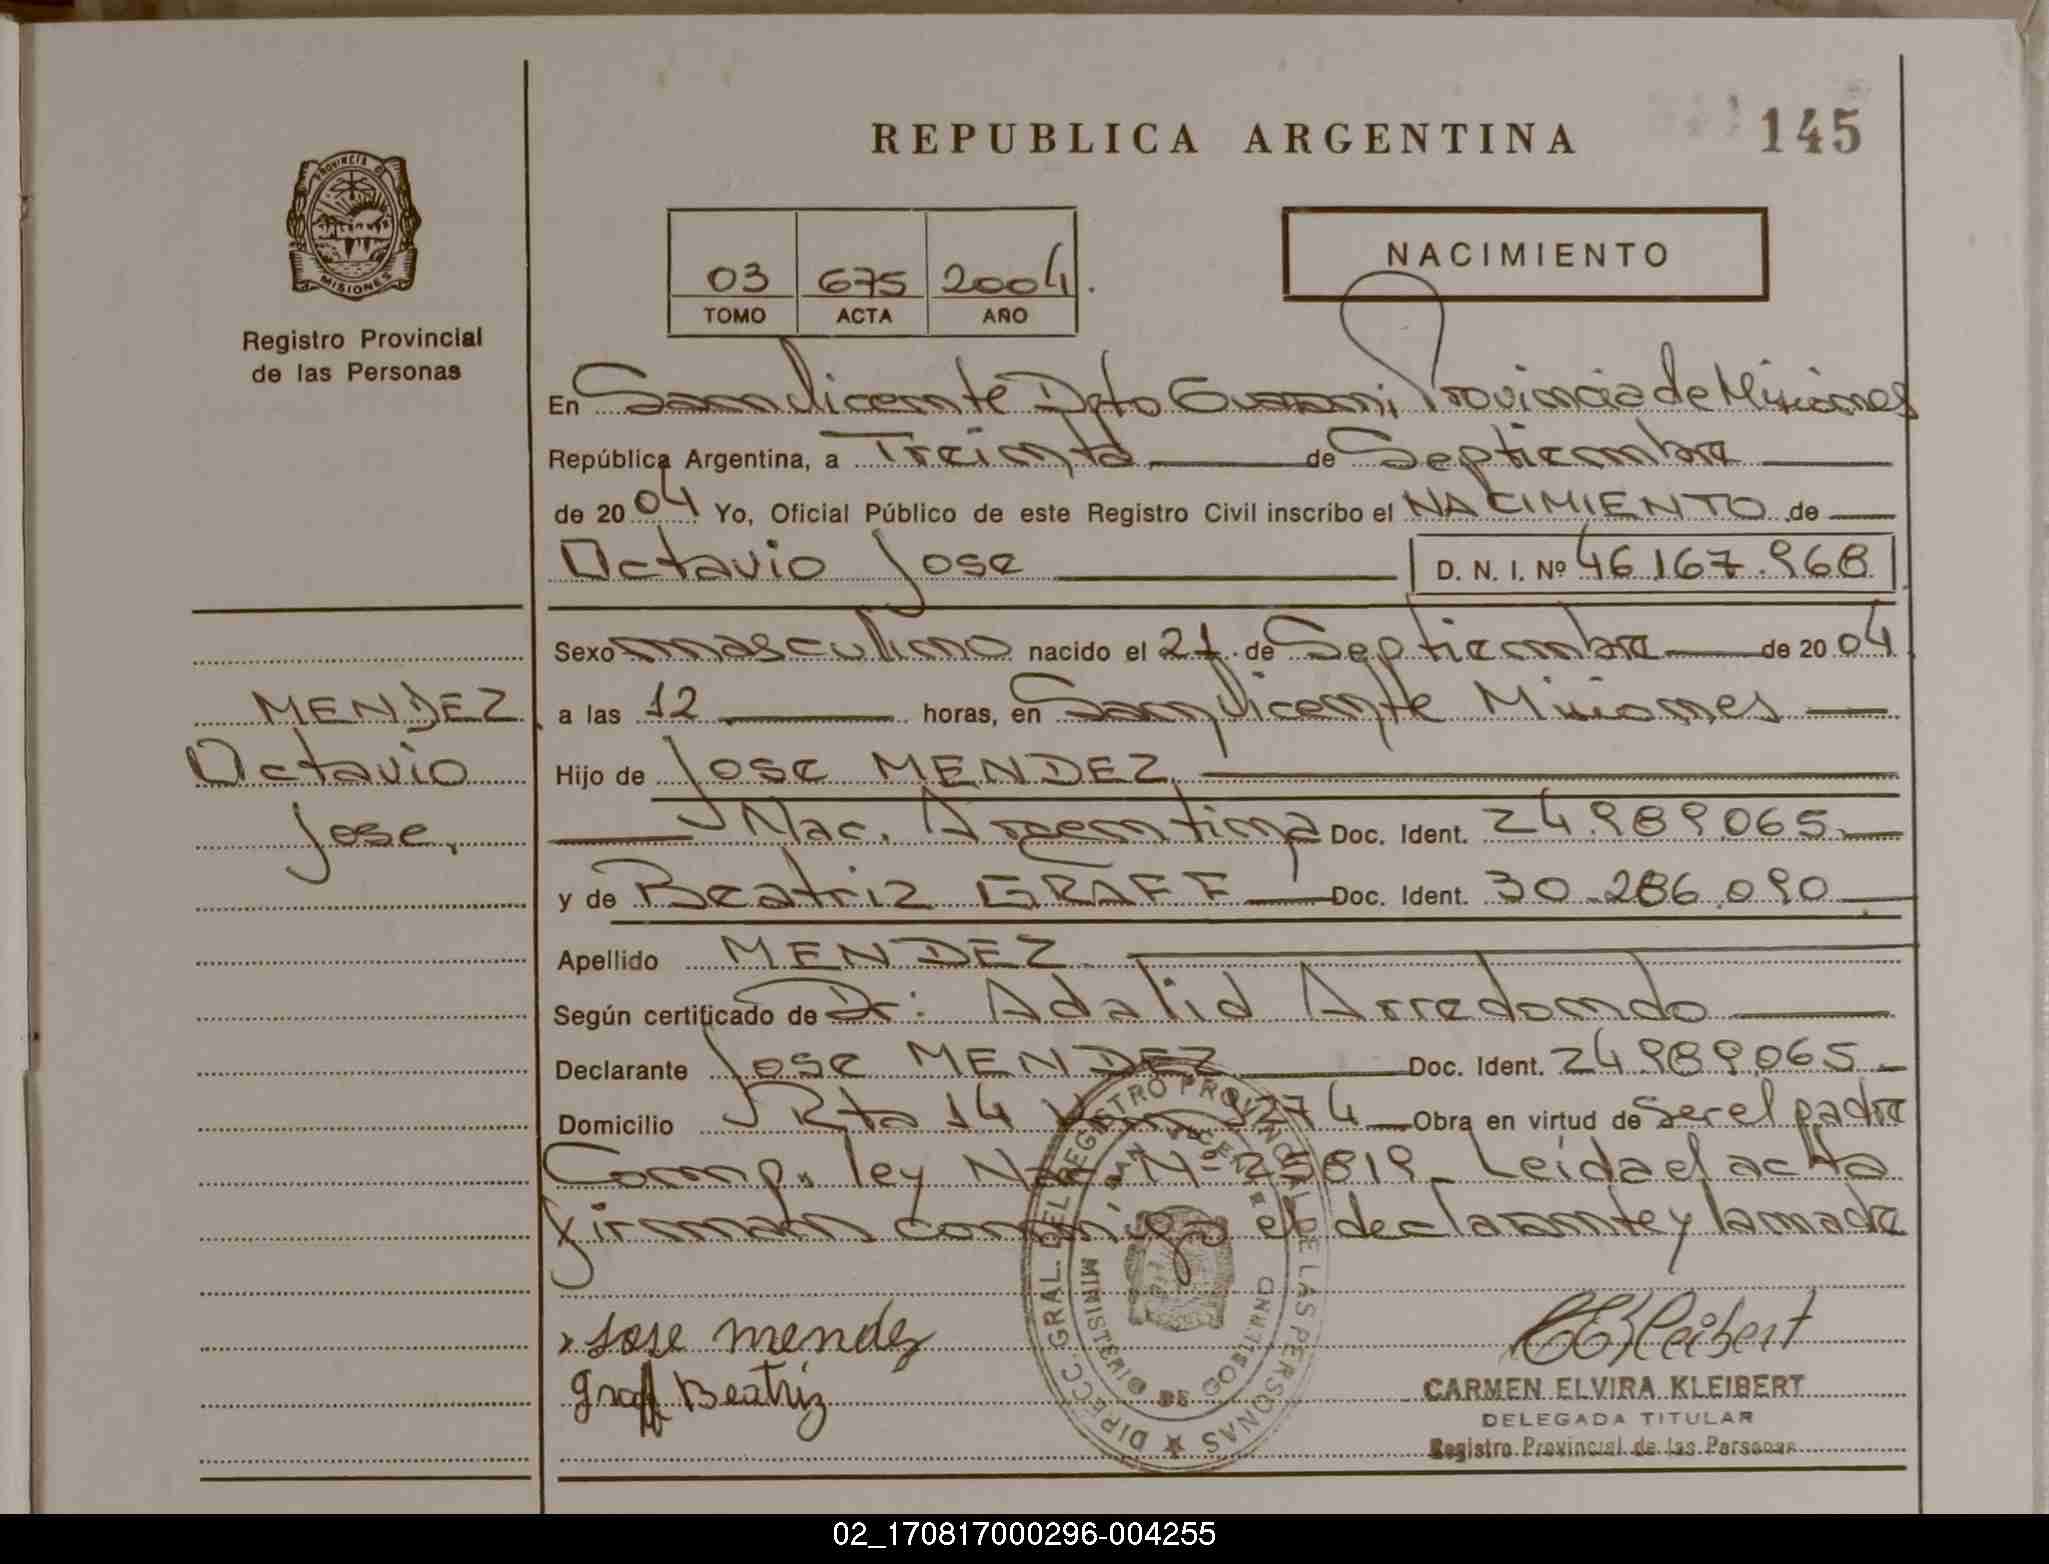 REPUBLICA ARGENTINA
145
PROVINCIA D
MISIONES
Registro Provincial
de las Personas
03 675 2004.
TOMO ACTA AÑO
NACIMIENTO
En San Vicente Dpto Guarani, Provincia de Misiones
República Argentina, a Treinta de Septiembre
de 2004 Yo, Oficial Público de este Registro Civil inscribo el NACIMIENTO de
Octavio Jose D. N. I. Nº 46.167.968
Sexo masculino nacido el 21 de Septiembre de 2004
a las 12 horas, en San Vicente Misiones
MENDEZ
Octavio
Jose.
Hijo de Jose MENDEZ
Nac. Argentina Doc. Ident. 24.989.065
y de Beatriz GRAFF Doc. Ident. 30.286.090
Apellido MENDEZ
Según certificado de Dr: Adalid Arredondo
Declarante Jose MENDEZ Doc. Ident. 24.989.065
Domicilio Rta 14 Km 1274 Obra en virtud de ser el padre
Comp. ley Nac. Nº 25819 Leida el acta
firman conmigo el declarante y la madre
Jose mendez
graff Beatriz
DIRECC. GRAL. DEL REGISTRO PROVINCIAL DE LAS PERSONAS
SAN VICENTE
MINISTERIO DE GOBIERNO
CEKleibert
CARMEN ELVIRA KLEIBERT
DELEGADA TITULAR
Registro Provincial de las Personas
02_170817000296-004255